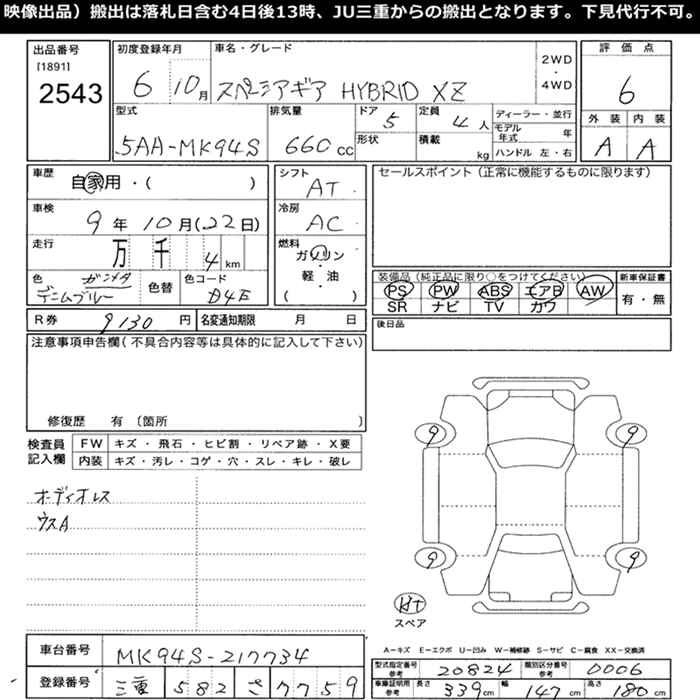 映像出品）搬出は落札日含む4日後13時、JU三重からの搬出となります。下見代行不可。
出品番号
[1891]
2543
初度登録年月
6 10月
車名・グレード
スペーシアギア HYBRID XZ
2WD
・
4WD
評価点
6
型式
5AA-MK94S
排気量
660cc
ドア 5
形状
定員 4人
積載 kg
ディーラー・並行
モデル年式 年
ハンドル 左・右
外装 内装
A A
車歴 自家用・( )
車検 9年10月(22日)
走行 万 千 4km
色 ガンメタ
デニムブルー
色替
色コード
D4E
シフト
AT
冷房
AC
燃料
ガソリン
・
軽・油
( )
セールスポイント（正常に機能するものに限ります）
装備品（純正品に限り○をつけてください）
PS PW ABS エアB AW
SR ナビ TV カワ
新車保証書
有・無
R券 9130円
名変通知期限 月 日
後日品
注意事項申告欄（不具合内容等は具体的に記入して下さい）
修復歴 有〔箇所 〕
検査員
記入欄
FW キズ・飛石・ヒビ割・リペア跡・X要
内装 キズ・汚レ・コゲ・穴・スレ・キレ・破レ
オーディオレス
ウスA
9 9
9 9
スペア
A－キズ E－エクボ U－凹み W－補修跡 S－サビ C－腐食 XX－交換済
車台番号 MK94S-217734
登録番号 三重 582 さ 7759
型式指定番号
参考
20824
類別区分番号
参考
0006
車庫証明用
参考
長さ 339cm 幅 147cm 高さ 180cm